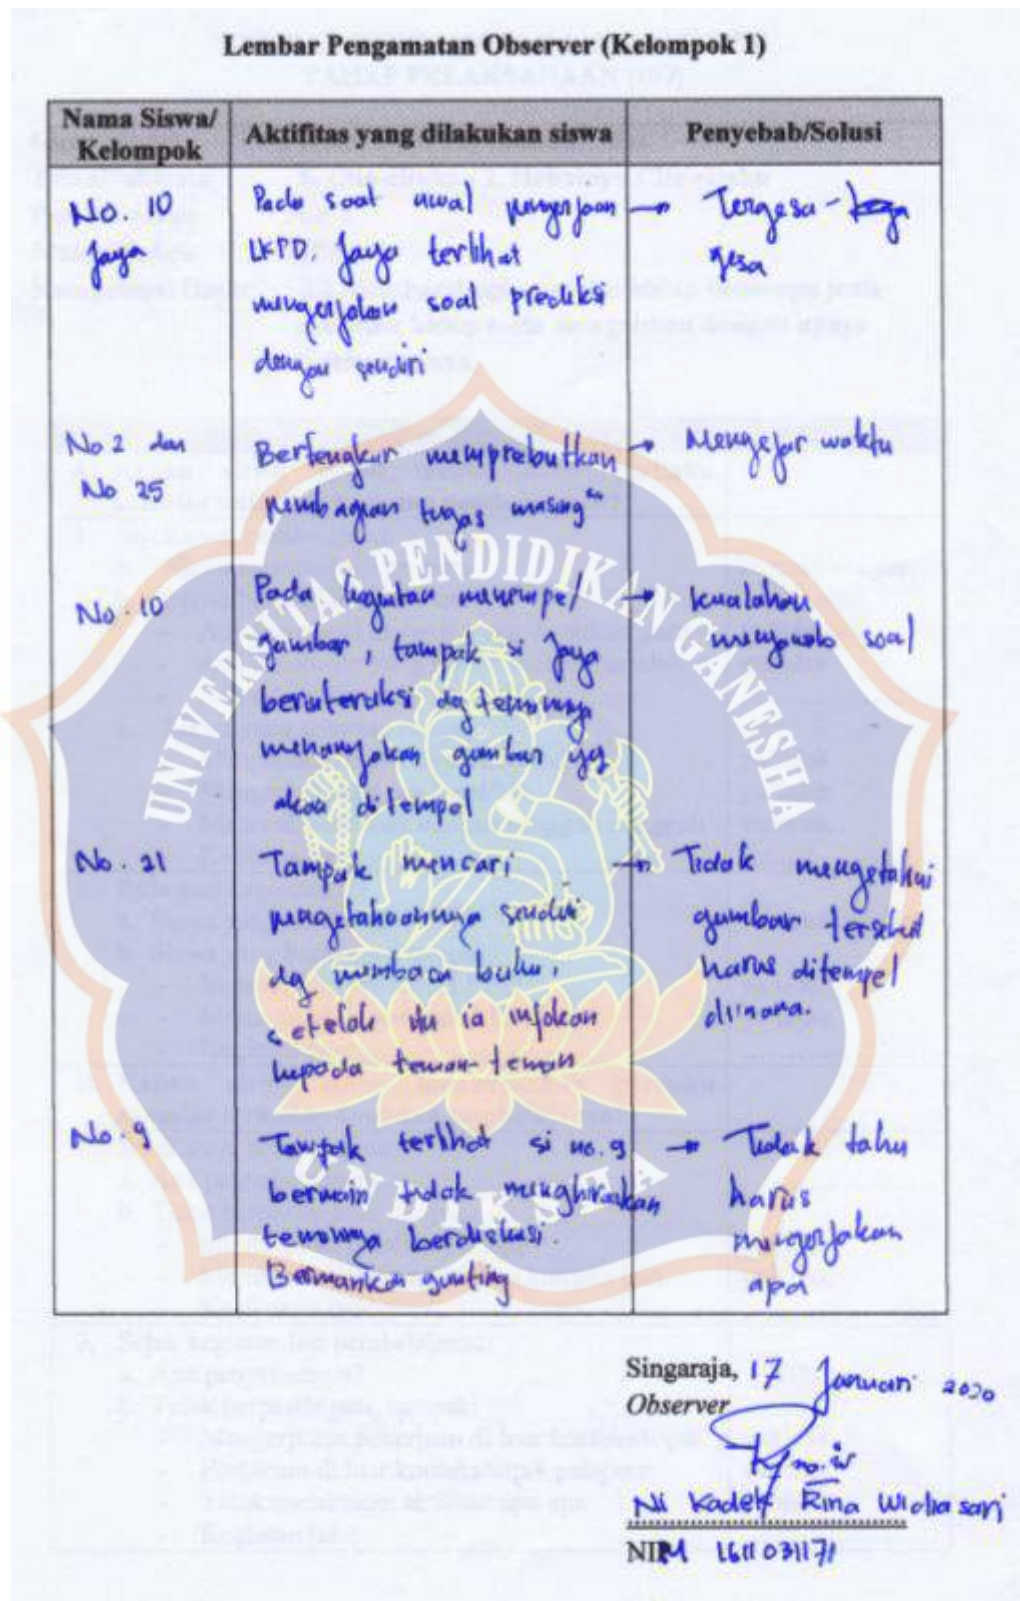 Lembar Pengamatan Observer (Kelompok 1)
Nama Siswa/
Kelompok
Aktifitas yang dilakukan siswa
Penyebab/Solusi
No. 10
Jaya
Pada saat awal pengerjaan →
LKPD. Jaya terlihat
mengerjakan soal prediksi
dengan sendiri
Tergesa-
gesa
No 2 dan
No 25
Bertengkar memprebutkan →
pembagian tugas masing"
Mengejar waktu
No. 10
Pada kegiatan menempel →
gambar, tampak si Jaya
berinteraksi dg temannya
menanyakan gambar yg
akan ditempel
kualahan
menjawab soal
No. 21
Tampak mencari →
pengetahuannya sendiri
dg membaca buku,
setelah itu ia infokan
kepada teman-teman
Tidak mengetahui
gambar tersebut
harus ditempel
dimana.
No. 9
Tampak terlihat si no. 9 →
bermain tidak menghiraukan
temannya berdiskusi.
Bermainkan gunting
Tidak tahu
harus
mengerjakan
apa
UNIVERSITAS PENDIDIKAN GANESHA
UNDIKSHA
Singaraja, 17 Januari 2020
Observer
Ni Kadek Rina Widiasari
NIM 1611031171